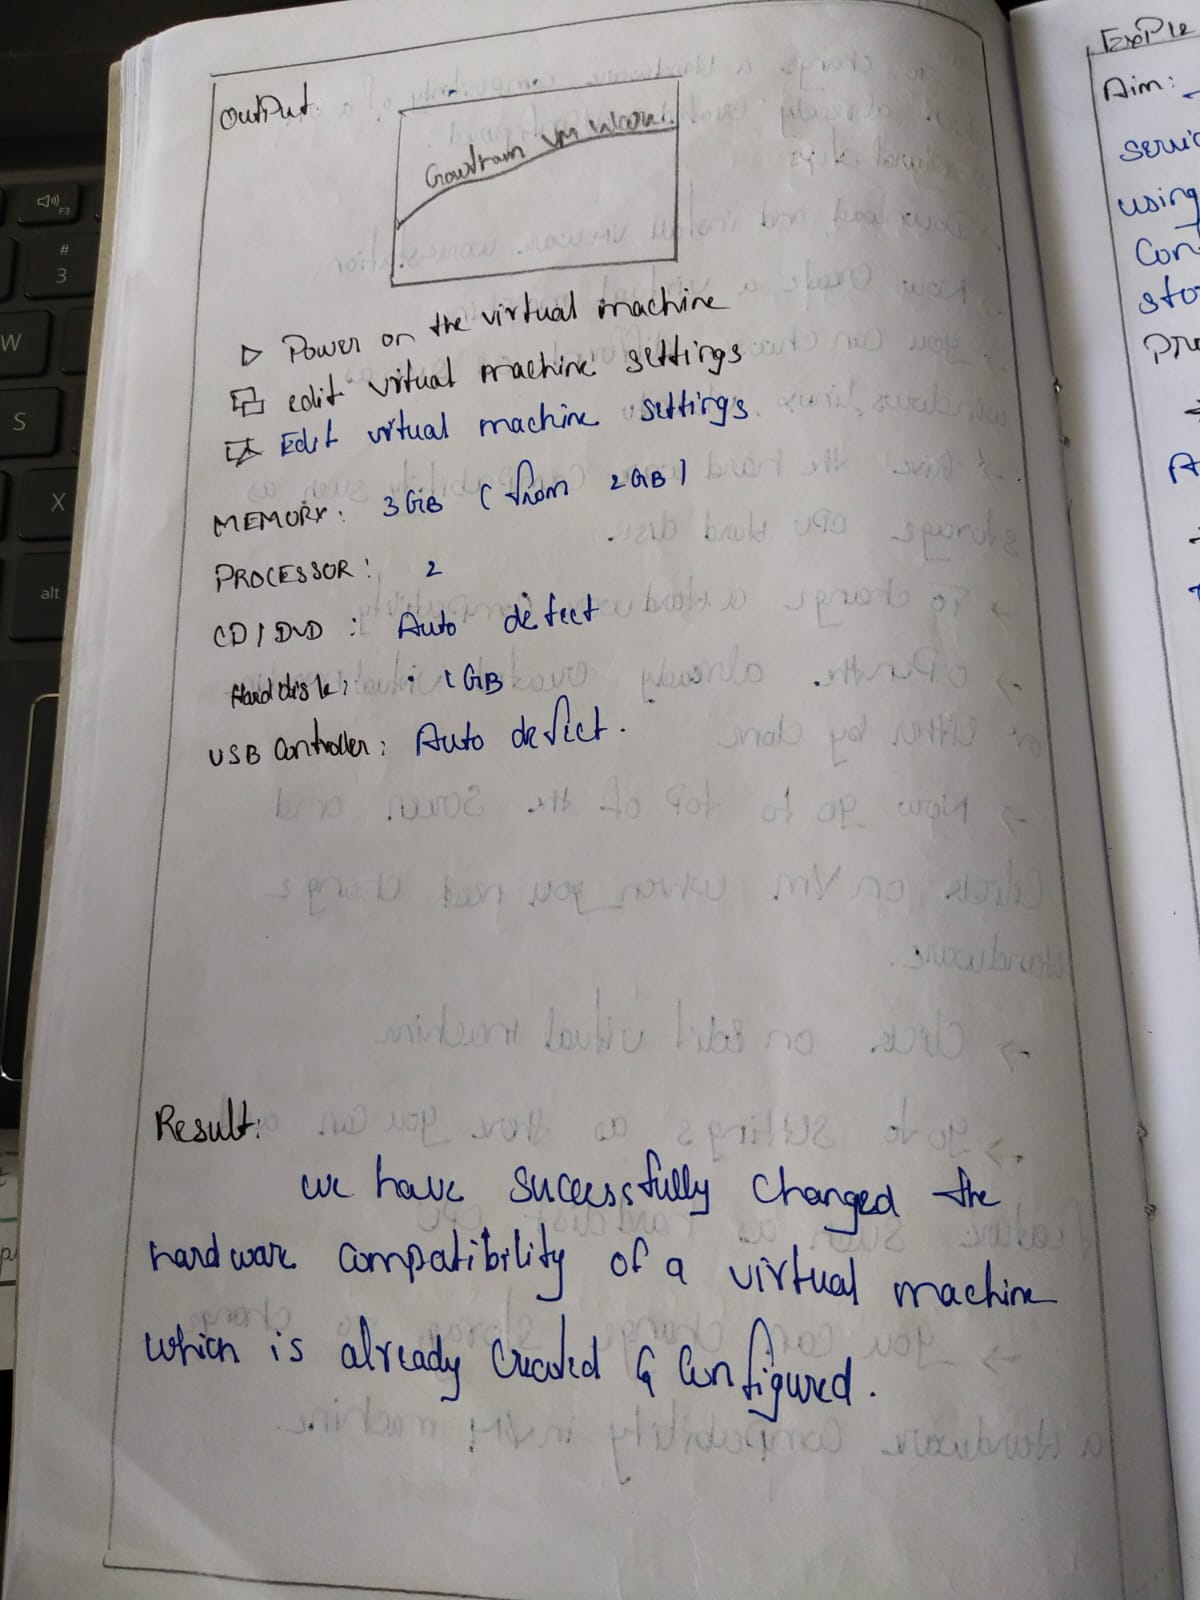 Output.
Gowtham VM Ware.
Power on the virtual machine
edit virtual machine settings
Edit virtual machine settings.
MEMORY: 3GiB (from 2GB)
PROCESSOR: 2
CD/DVD : Auto detect
Hard disk: 1GB
USB Controller: Auto detect.
Result:
we have sucessfully changed the
hardware compatibility of a virtual machine
which is already created & configured.
Aim:
using
F3
#
3
W
S
X
alt